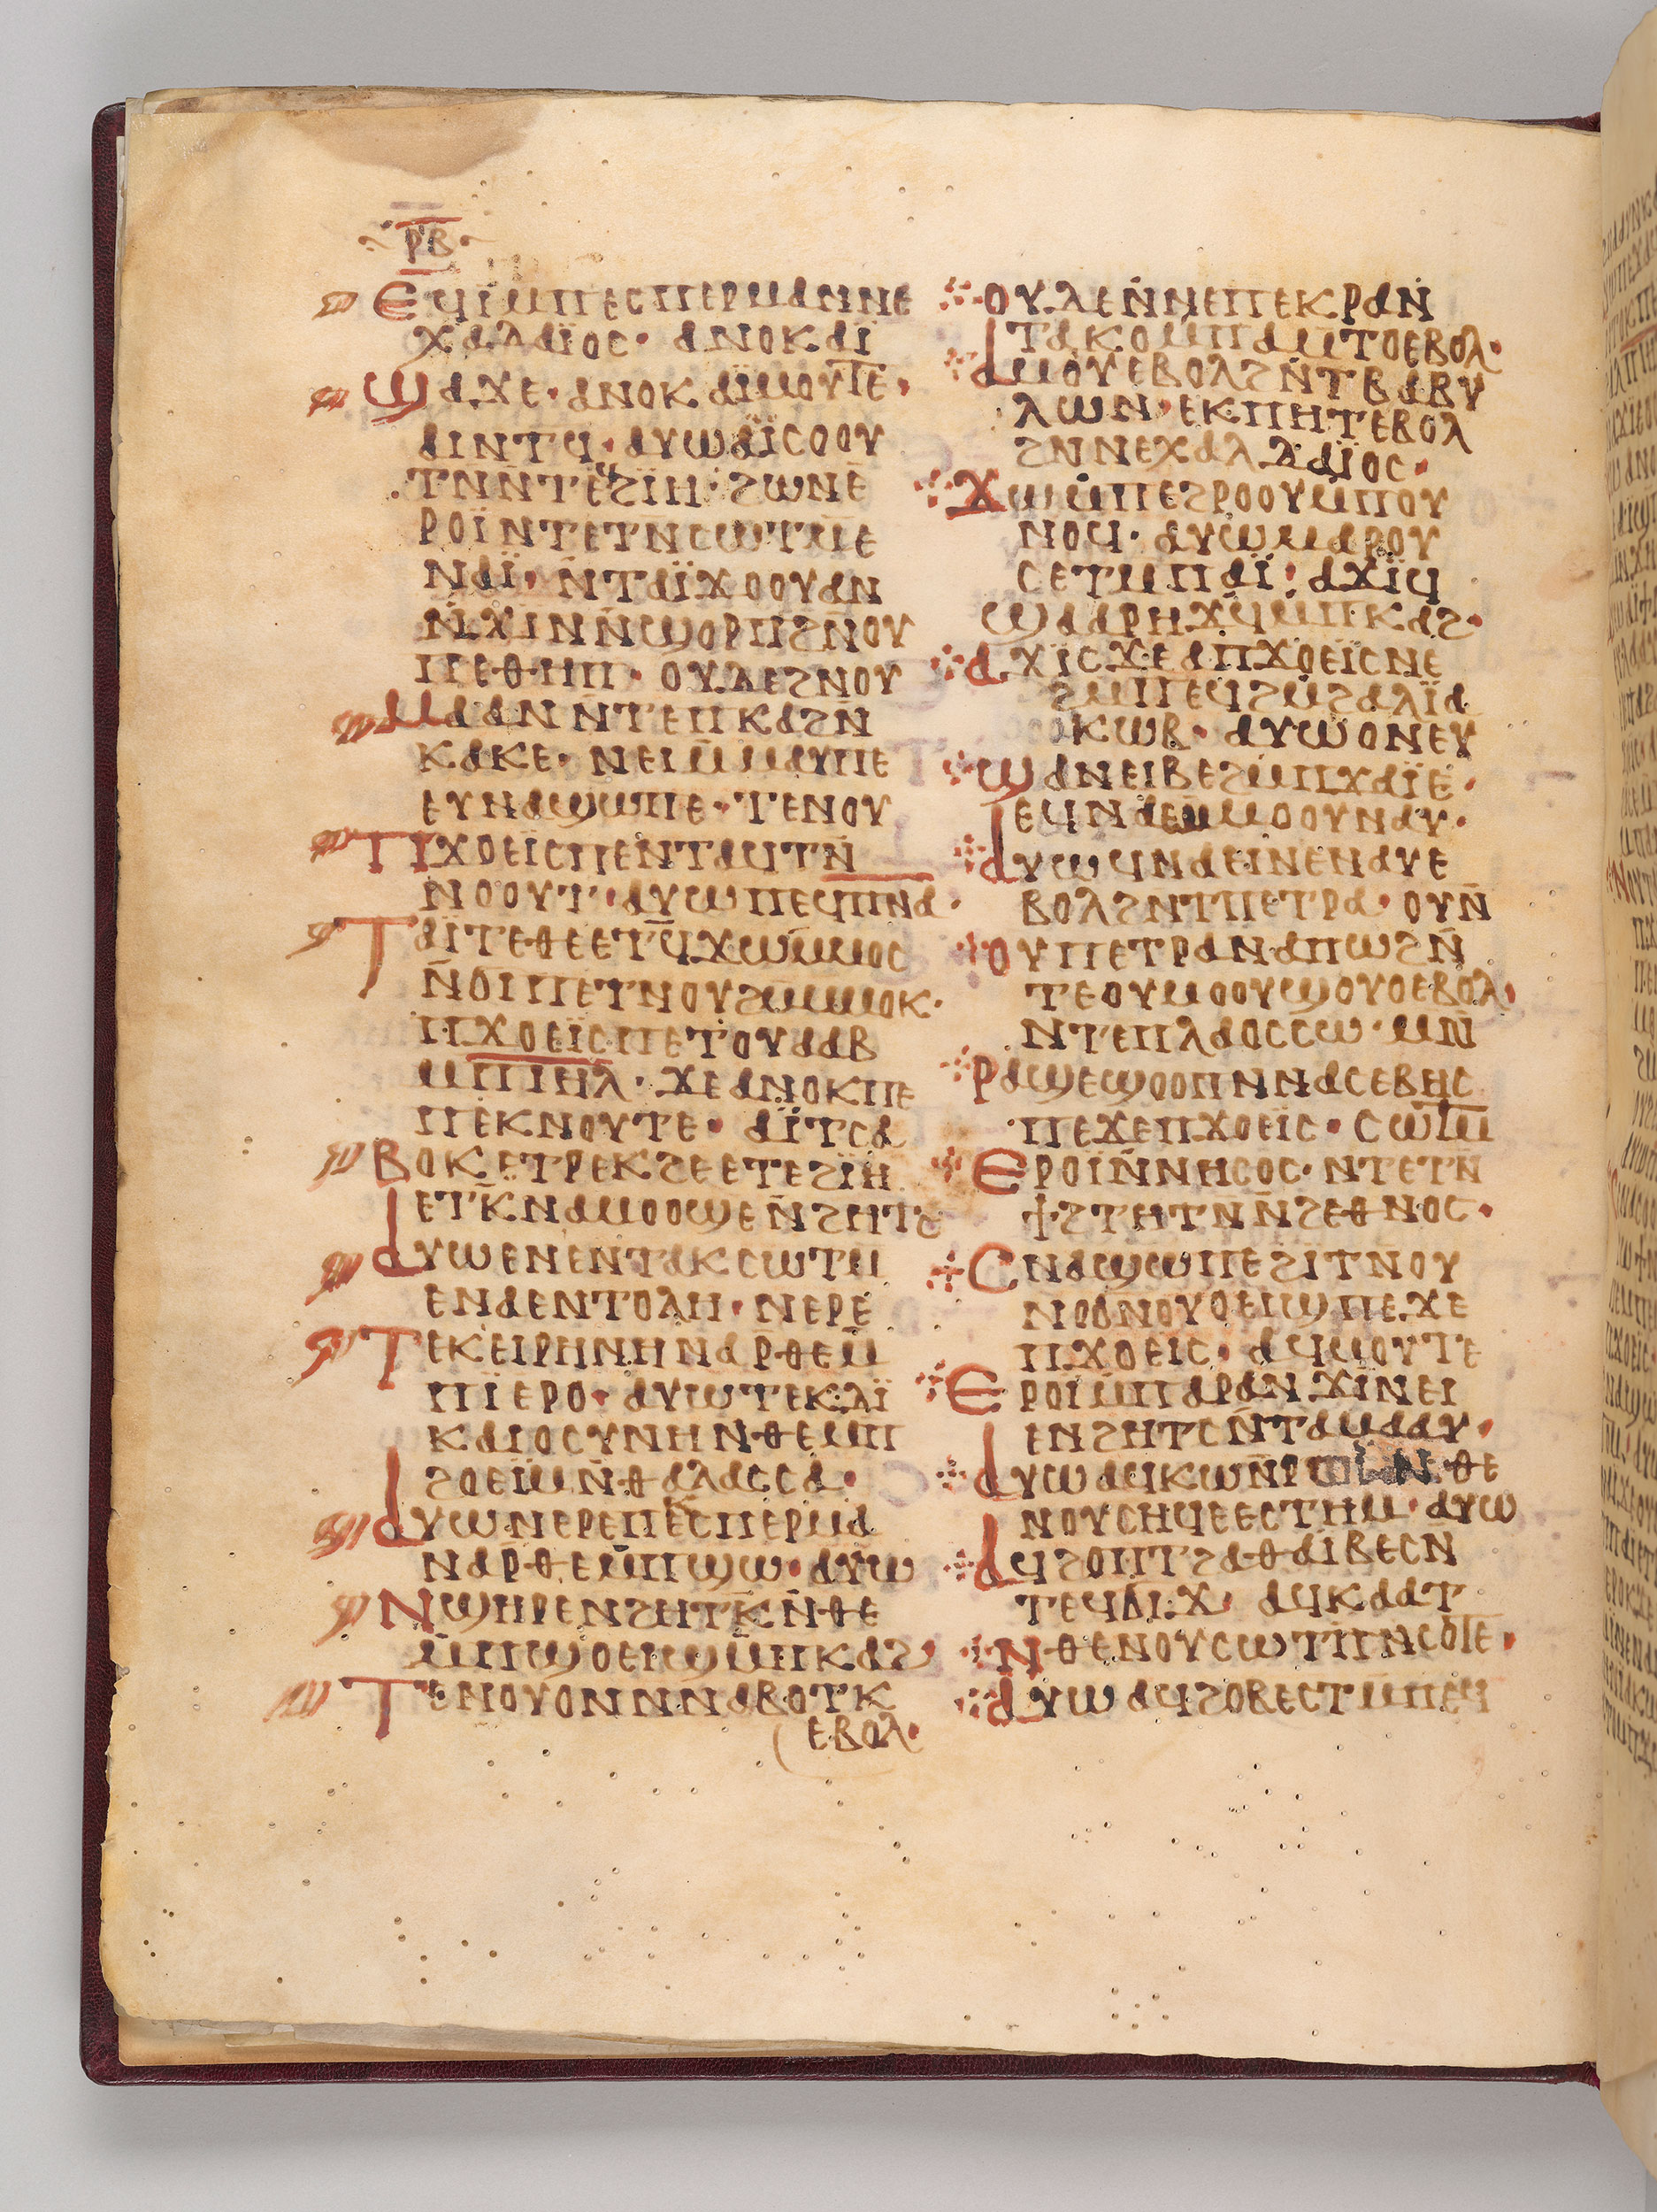 ⲣ̅ⲃ̅
ⲉϥⲓⲙⲡⲉⲥⲡⲉⲣⲙⲁⲛⲛⲉ
ⲭⲁⲗⲇⲁⲓ̈ⲟⲥ· ⲁⲛⲟⲕⲁⲓ
ϣⲁϫⲉ· ⲁⲛⲟⲕⲁⲓ̈ⲙⲟⲩⲧⲉ·
ⲁⲓⲛⲧϥ· ⲁⲩⲱⲁⲓ̈ⲥⲟⲟⲩ
ⲧⲛ̅ⲛ̅ⲧⲉϥϩⲓ̈ⲏ· ϩⲱⲛⲉ̅
ⲣⲟⲓ̈ⲛⲧⲉⲧⲛⲥⲱⲧⲙ̅ⲉ
ⲛⲁⲓ̈· ⲛ̅ⲧⲁⲓ̈ϫⲟⲟⲩⲁⲛ
ⲛ̅ϫⲓⲛⲛ̅ϣⲟⲣⲡϩⲛ̅ⲟⲩ
ⲡⲉⲑⲏⲡ· ⲟⲩⲇⲉϩⲛⲟⲩ
ⲙⲁⲁⲛⲛⲧⲉⲡⲕⲁϩⲛ̅
ⲕⲁⲕⲉ· ⲛⲉⲓⲙ̅ⲙⲁⲩⲡⲉ
ⲉⲩⲛⲁϣⲱⲡⲉ· ⲧⲉⲛⲟⲩ
ⲡϫⲟⲉⲓ̈ⲥⲡⲉⲛⲧⲁϥⲧⲛ̅
ⲛⲟⲟⲩⲧ· ⲁⲩⲱⲡⲉϥⲡⲛ̅ⲁ̅·
ⲧⲁⲓ̈ⲧⲉⲑⲉⲉⲧϥ̅ϫⲱⲙ̅ⲙⲟⲥ
ⲛ̅ϭⲓⲡⲉⲧⲛⲟⲩϩⲙ̅ⲙⲟⲕ·
ⲡϫⲟⲉⲓ̈ⲥⲡⲉⲧⲟⲩⲁⲁⲃ
ⲙⲡⲓ̅ⲏ̅ⲗ̅· ϫⲉⲁⲛⲟⲕⲡⲉ
ⲡⲉⲕⲛⲟⲩⲧⲉ· ⲁⲓ̈ⲧⲥⲁ
ⲃⲟⲕⲉⲧⲣⲉⲕϩⲉⲉⲧⲉϩⲓ̈ⲏ
ⲉⲧⲕ̅ⲛⲁⲙⲟⲟϣⲉⲛ̅ϩⲏⲧⲥ̅
ⲁⲩⲱⲉⲛⲉⲛⲧⲁⲕⲥⲱⲧⲙ̅
ⲉⲛⲁⲉⲛⲧⲟⲗⲏ· ⲛⲉⲣⲉ
ⲧⲉⲕⲉⲓⲣⲏⲛⲏⲛⲁⲣ̅ⲑⲉⲙ̅
ⲡⲓ̈ⲉⲣⲟ· ⲁⲩⲱⲧⲉⲕⲇⲓ̈
ⲕⲁⲓⲟⲥⲩⲛⲏⲛ̅ⲑⲉⲙⲡ
ϩⲟⲉⲓ̈ⲙⲛ̅ⲑⲁⲗⲁⲥⲥⲁ·
ⲁⲩⲱⲛⲉⲣⲉⲡⲉⲕⲥⲡⲉⲣⲙⲁ
ⲛⲁⲣ̅ⲑⲉⲙ̅ⲡϣⲱ· ⲁⲩⲱ
ⲛϣⲏⲣⲉⲛϩⲏⲧⲕ̅ⲛ̅ⲑⲉ
ⲙ̅ⲡϣⲟⲉⲓϣⲙ̅ⲡⲕⲁϩ·
ⲧⲉⲛⲟⲩⲟⲛⲛⲛ̅ⲁⲃⲟⲧⲕ
ⲉⲃⲟⲗ·
ⲟⲩⲇⲉⲛ̅ⲛⲉⲡⲉⲕⲣⲁⲛ
ⲧⲁⲕⲟⲙ̅ⲡⲁⲙ̅ⲧⲟⲉⲃⲟⲗ·
ⲁⲙⲟⲩⲉⲃⲟⲗϩⲛ̅ⲧⲃⲁⲃⲩ
ⲗⲱⲛ· ⲉⲕⲡⲏⲧⲉⲃⲟⲗ
ϩⲛⲛⲉⲭⲁⲗⲇⲁⲓ̈ⲟⲥ·
ϫⲱⲙ̅ⲡⲉϩⲣⲟⲟⲩⲙ̅ⲡⲟⲩ
ⲛⲟϥ· ⲁⲩⲱⲙⲁⲣⲟⲩ
ⲥⲉⲧⲙⲡⲁⲓ̈· ⲁϫⲓ̈ϥ
ϣⲁⲁⲣⲏϫϥ̅ⲙ̅ⲡⲕⲁϩ·
ⲁϫⲓ̈ⲥϫⲉⲁⲡϫⲟⲉⲓ̈ⲥⲛⲉ
ϩⲙⲡⲉϥϩⲙ̅ϩⲁⲗⲓ̈ⲁ
ⲕⲱⲃ· ⲁⲩⲱⲟⲛⲉⲩ
ϣⲁⲛⲉⲓⲃⲉϩⲙ̅ⲡϫⲁⲓ̈ⲉ·
ⲉϥⲛⲁⲉⲙⲙⲟⲟⲩⲛⲁⲩ·
ⲁⲩⲱϥⲛⲁⲉⲓⲛⲉⲛⲁⲩⲉ
ⲃⲟⲗϩⲛⲧⲡⲉⲧⲣⲁ· ⲟⲩⲛ̅
ⲟⲩⲡⲉⲧⲣⲁⲛⲁⲡⲱϩⲛ̅
ⲧⲉⲟⲩⲙⲟⲟⲩϣⲟⲩⲟⲉⲃⲟⲗ·
ⲛⲧⲉⲡⲗⲁⲟⲥⲥⲱ· ⲙⲛ̅
ⲣⲁϣⲉϣⲟⲟⲡⲛⲛⲁⲥⲉⲃⲏⲥ
ⲡⲉϫⲉⲡϫⲟⲉⲓⲥ· ⲥⲱⲧⲙ̅
ⲉⲣⲟⲓ̈ⲛ̅ⲛⲏⲥⲟⲥ· ⲛⲧⲉⲧⲛ̅
ϯϩⲧⲏⲧⲛ̅ⲛ̅ϩⲉⲑⲛⲟⲥ·
ⲥⲛⲁϣⲱⲡⲉϩⲓⲧⲛ̅ⲟⲩ
ⲛⲟϭⲛⲟⲩⲟⲉⲓϣⲡⲉϫⲉ
ⲡϫⲟⲉⲓⲥ· ⲁϥⲙⲟⲩⲧⲉ
ⲉⲣⲟⲓⲙ̅ⲡⲁⲣⲁⲛϫⲓⲛⲉⲓ
ⲉⲛϩⲏⲧⲥⲛ̅ⲧⲁⲙⲁⲁⲩ·
ⲁⲩⲱⲁϥⲕⲱⲛ̅ⲣⲱⲓ̈ⲛ̅ⲑⲉ
ⲛⲟⲩⲥⲏϥⲉⲉⲥⲧⲏⲙ· ⲁⲩⲱ
ⲁϥϩⲟⲡⲧϩⲁⲑⲁⲓⲃⲉⲥⲛ̅
ⲧⲉϥϭⲓϫ· ⲁϥⲕⲁⲁⲧ
ⲛⲑⲉⲛⲟⲩⲥⲱⲧⲡⲛⲥⲟⲧⲉ·
ⲁⲩⲱⲁϥϩⲟⲃⲉⲥⲧⲙⲡⲉϥ